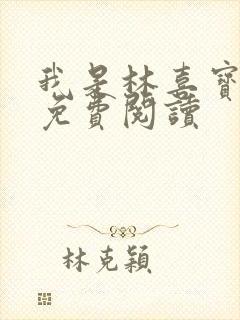 我是林喜寶
免費閱讀
林克穎